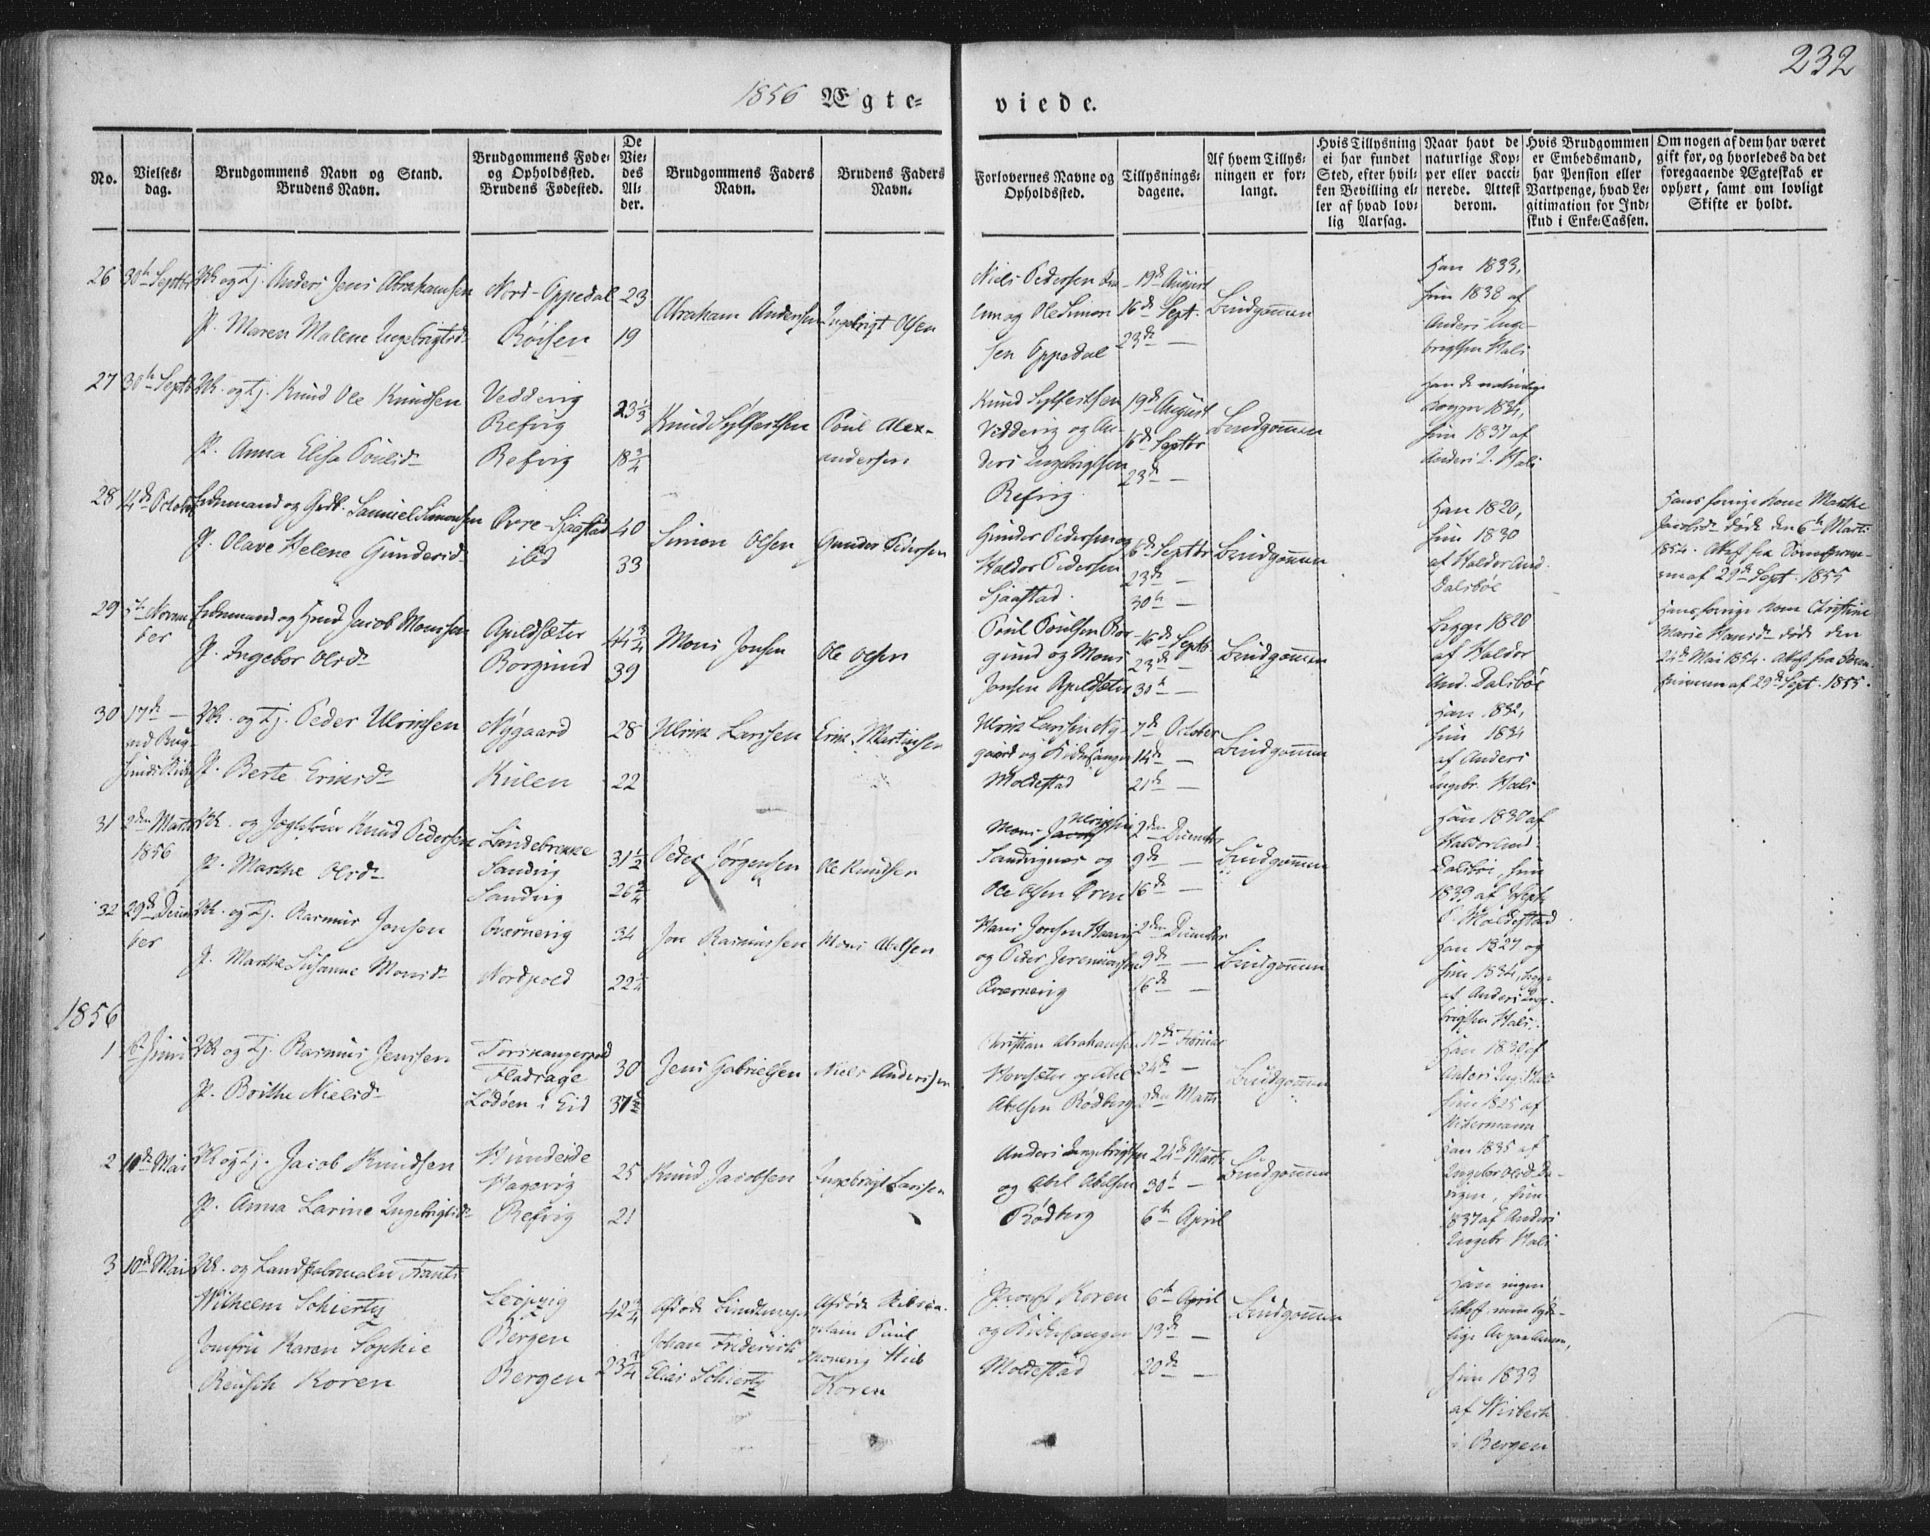 232
1856 Ægte-
viede.
No.
Vielses-
dag.
Brudgommens Navn og Stand.
Brudens Navn.
Brudgommens Føde-
og Opholdssted.
Brudens Fødested.
De
Vie-
des
Al-
der.
Brudgommens Faders
Navn.
Brudens Faders
Navn.
Forlovernes Navne og
Opholdssted.
Tillysnings-
dagene.
Af hvem Tillys-
ningen er for-
langt.
Hvis Tillysning
ei har fundet
Sted, efter hvil-
ken Bevilling el-
ler af hvad lov-
lig Aarsag.
Naar havt de
naturlige Kop-
per eller vacci-
nerede. Attest
derom.
Hvis Brudgommen
er Embedsmand,
har Pension eller
Vartpenge, hvad Le-
gitimation for Ind-
skud i Enke-Cassen.
Om nogen af dem har været
gift før, og hvorledes da det
foregaaende Ægteskab er
ophørt, samt om lovligt
Skifte er holdt.
26 30th Septbr Uk og Tj. Anders Jens Abrahamsen
P. Maren Malene Ingebrigtsd
Nord-Oppedal
Røisen
23
19
Abraham Andersen
Ingebrigt Olsen
Niels Pedersen
og Ole Simon
sen Oppedal
19de August
16de Sept.
23de —
Brudgommen
Han 1833,
hun 1838 af
Anders Inge-
brigtsen Hals
27 30th Septb Uk. og Tj. Knud Ole Knudsen
P. Anna Elisa Poulsd
Vedvig
Refvig
Refvig
23 1/3
18 3/4
Knud Sylfestsen
Poul Alex-
andersen
Knud Sylfestsen
Vedvig og An-
ders Ingebrigtsen
Refvig.
19de August
16de Septbr
23de —
Brudgommen
Han de naturlige
Kopper 1834,
hun 1837 af
Anders I. Hals
28 14de October Enkemand og Gdb. Samuel Simonsen
P. Olave Helene Gundersd
Øvre-Sjaastad
ibd
40
33
Simon Olsen
Gunder Pedersen
Gunder Pedersen og
Haldor Pedersen
Sjaastad.
16de Septbr
23de —
30th —
Brudgommen
Han 1820,
hun 1830
af Haldor And.
Dalsbøe
Hans forrige Kone Marthe
Jacobsd døde den 6th Marti
1854. Attest fra
af 29de Sept. 1855
29 5th Novem
ber
Enkemand og Hmd Jacob Monssen
P. Ingebor Olsd
Apeldsæter
Borgund
44 3/4
39
Mons Jonsen
Ole Olsen
Poul Poulsen Bor-
gund og Mons
Jonsen Apeldsæter
16de Septb
23de —
30th —
Brudgommen
begge 1820
af Haldor
And. Dalsbøe
Hans forrige Kone Christine
Marie Hansd døde den
24de Mai 1854. Attest fra
af 29de Sept. 1855.
30 17th —
Uk. og Tj. Peder Ulriksen
P. Berte Eriksd
Nygaard
Kulen
28
22
Ulrik Larsen
Erik Martinsen
Ulrik Larsen Ny-
gaard og Kirkesanger
Moldestad
7de October
14de —
21de —
Brudgommen
Han 1832,
hun 1834
af Anders
Ingebr. Hals
31 2den Marts
1856
Uk. og Knud Pedersen
P. Marthe Olsd
Lundebrekke
Sandvig
Sandvig
31 1/2
26 3/4
Peder Jørgensen
Ole Knudsen
Mons Ulriksen
Sandvignes og
Ole Olsen Øren
2den Decembr
9de —
16de —
Brudgommen
Han 1830 af
Haldor And.
Dalsbøe, hun
1833 af Joseph
P. Moldestad
32 29de Decem
ber
Uk. og Tj. Rasmus Jonsen
P. Marthe Susanne Monsd
Qvernevig
Nordpold
34
22 1/4
Jon Rasmussen
Mons Abelsen
Hans Jonsen
og Peder Jeremiassen
Qvernevig
2den Decembr
9de —
16de —
Brudgommen
Han 1827 og
hun 1834, begge
af Anders Inge-
brigtsen Hals.
1856
1
Uk og Tj. Rasmus Jensen
P. Birthe Nielsd
Torskangerpold
Fladrage
Lødøen i Eid
30
Jens Gabrielsen
Niels Andersen
Christian Abrahamsen
Hovsæter og Abel
Abelsen Rødberg
17de Februar
24de —
2den Marts
Brudgommen
Han 1830 af
Anders Ing. Hals
hun 1825 af
2 10de Mai Uk og Tj. Jacob Knudsen
P. Anna Larine Ingebrigtsd
Hundeide
Hagevig
Refvig
25
21
Knud Jacobsen
Ingebrigt Larsen
Anders Ingebrigtsen
og Abel Abelsen
Rødberg
24de Marts
30th —
6th April
Brudgommen
Han 1835 af
Ingebor Olsd
hun
1837 af Anders
Ingebr Hals
3 10de Mai Uk. og Landskabsmaler Frants
Wilhelm Schiertz
Jomfru Karen Sophie
Reusch Koren
Leipzig
Bergen
Bergen
42 3/4
23 3/4
Afdøde
Johan Friderick
Elias Schiertz
Afdøde Resi.
Capelain Paul
Schonevig Hieb
Koren
Provst Koren
og Kirkesanger
Moldestad
6th April
13de —
20de —
Brudgommen
Han ingen
Attest men tyde-
lige Ar paa Armen,
hun 1833
af Wisbech
i Bergen